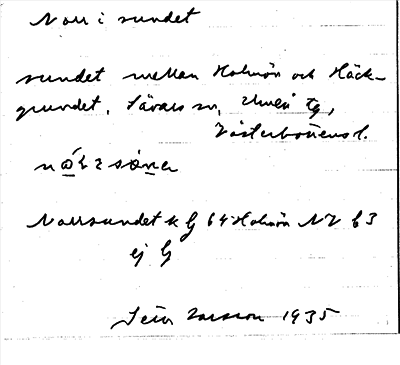 Norr i sundet
sundet mellan Holmön och Häck-
grundet, Sävars sn, Umeå tg,
Västerbottens l.
Norrsundet k G 64 Holmön NV b3
ej G
1935